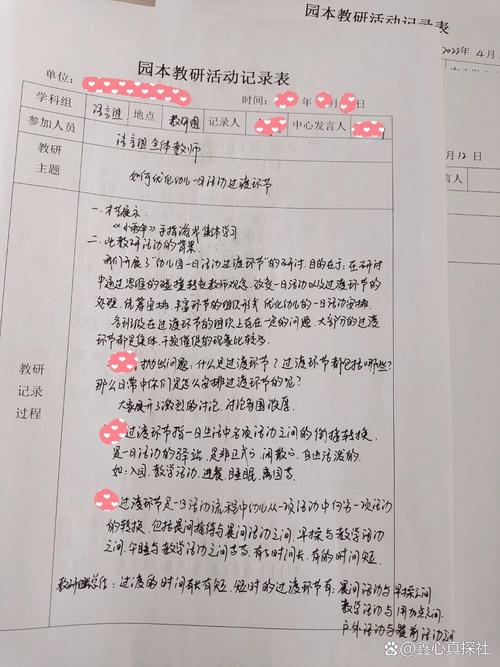 园本教研活动记录表
2023年4月
月12日
言人
园本教研活动记录表
单位：
时间： 年 月 日
学科组 语言组 地点 教研园 记录人 中心发言人
参加人员 语言组全体教师
教研主题 如何优化幼儿一日活动过渡环节
教研记录过程
一.才艺展示
《小雨伞》手指游戏 集体学习
二.此教研活动的背景
我们开展了"幼儿园一日活动过渡环节"的研讨,目的在于:在研讨
中通过思维的碰撞转变教师观念,改变一日活动以及过渡环节的
处理,统筹安排,丰富环节的组织形式,优化幼儿的一日活动安排
各班级在过渡环节的组织上存在一定的问题 大部分的过渡
环节都是集体,干预催促的现象比较多
抛出问题:什么是过渡环节?过渡环节都包括哪些?
那么日常中你们是怎么安排过渡环节的呢?
大家展开了激烈的讨论,讨论氛围浓厚
过渡环节指一日生活中各项活动之间的衔接转换
是一日活动的驿站,是非正式、闲散、自由活泼的.
如:入园、教学活动、进餐、睡眠、离园等
过渡环节是一日活动流程中幼儿从一项活动中向另一项活动
的转换,包括晨间接待与晨间活动之间,早操与教学活动
之间、午睡与教学活动之间等等,有的时间长,有的时间短
总结:过渡的时间有长有短,短时的过渡环节有:晨间活动与早操之间
教学活动与 加点之间
户外活动与餐前活动之间
@鑫心真探社